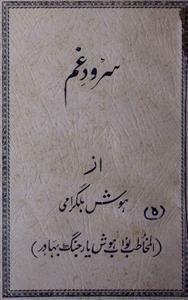 سرودِ غم
از
ہوش بلگرامی
(۵)
(المخاطب نواب ہوش یار جنگ بہادر)